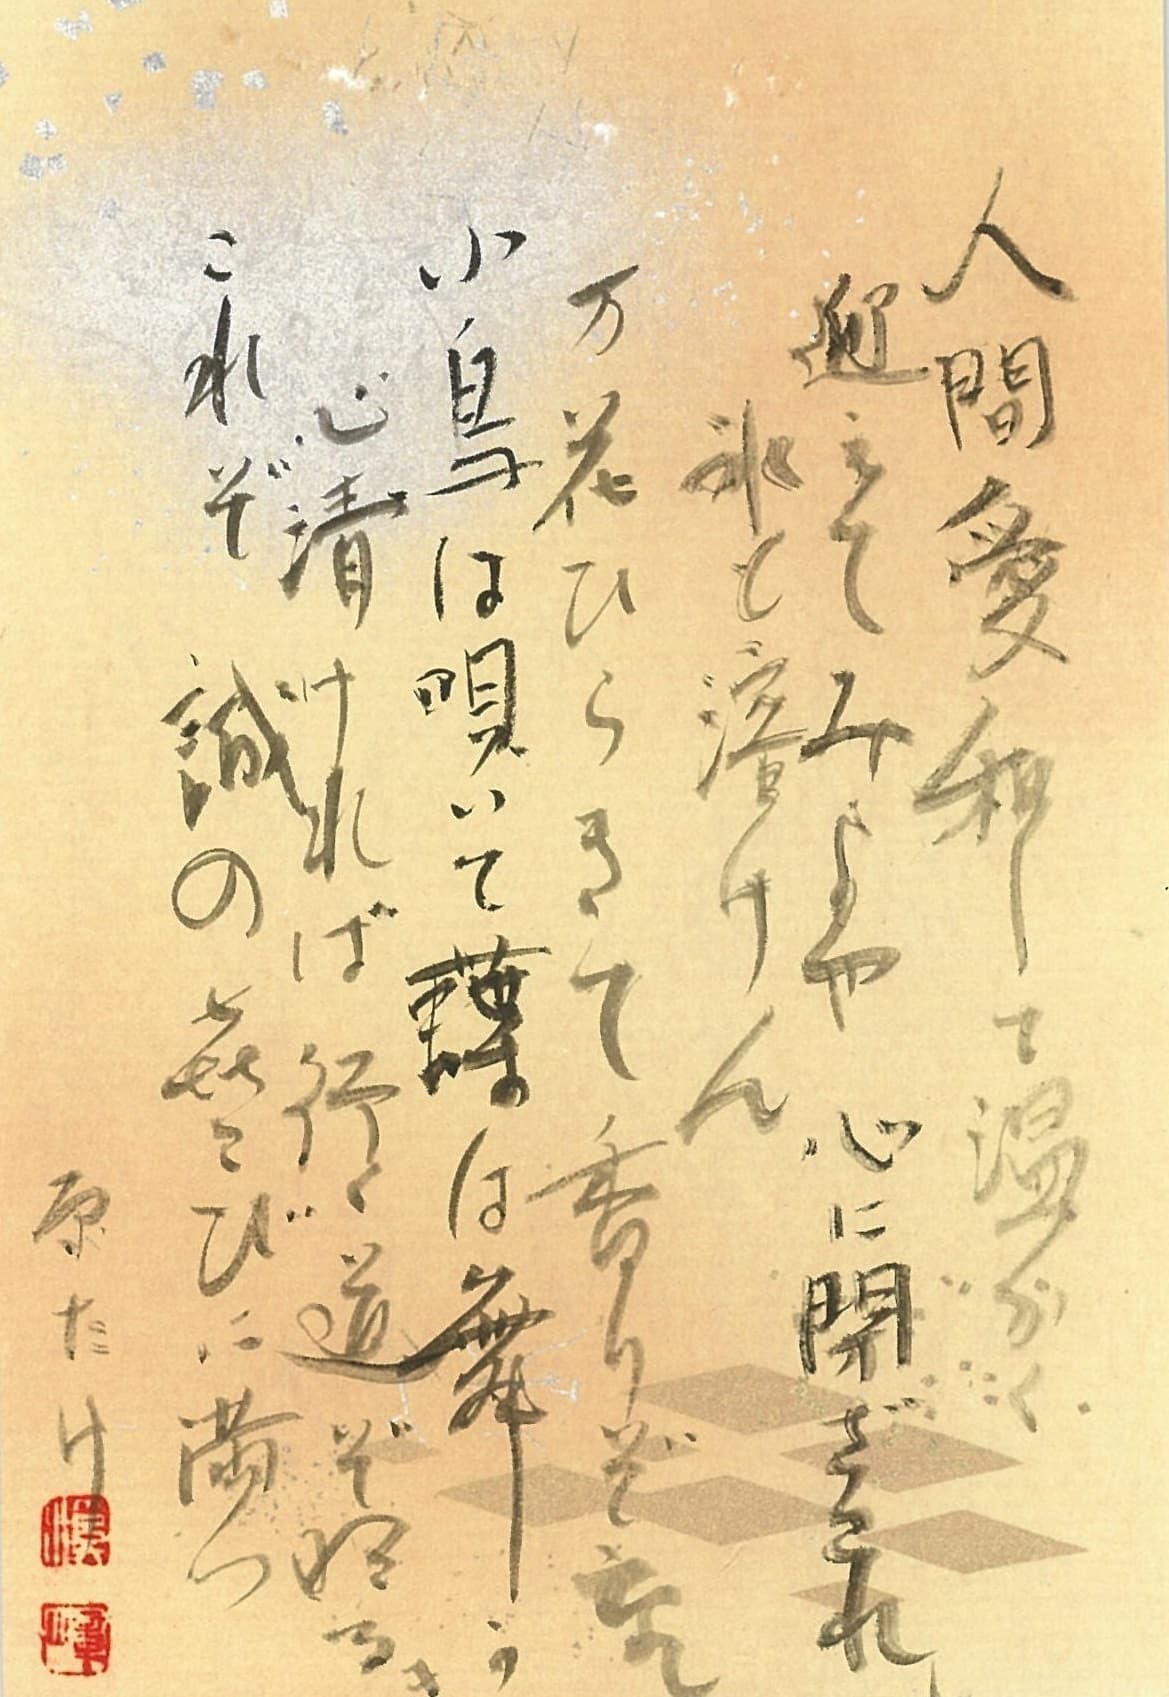 人間愛和して温かく
迎えてみよや 心に閉ざされ
氷も溶けん
万花ひらきて香りぞ
小鳥は唄いて蝶は舞う
心清ければ行く道ぞ
これぞ 誠の喜こびに満つ
原たけ